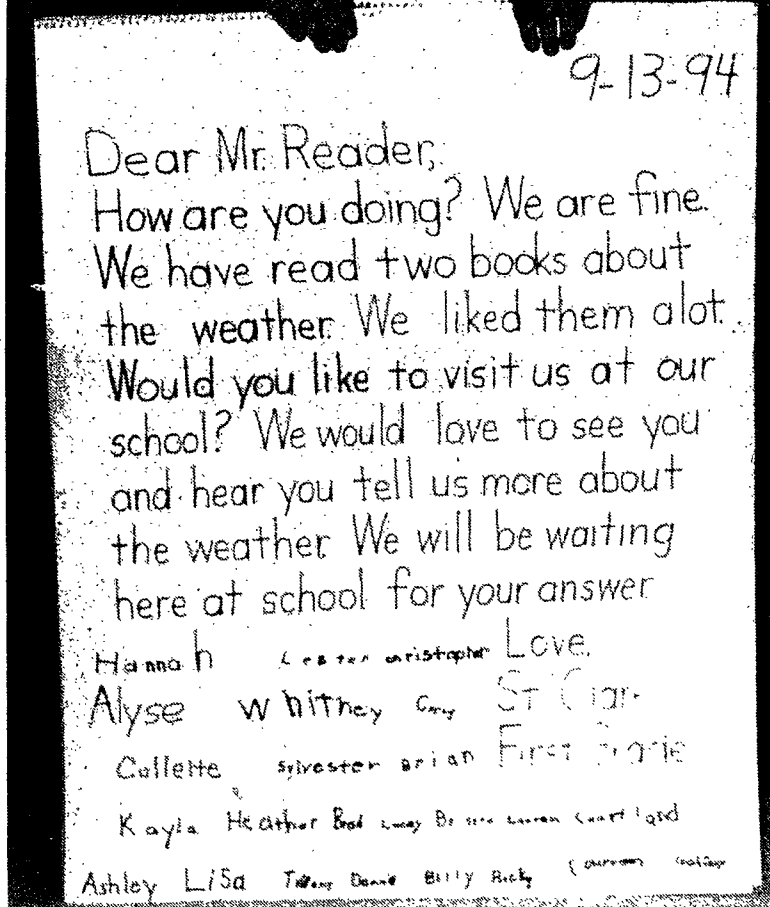 9-13-94
Dear Mr. Reader,
How are you doing? We are fine.
We have read two books about
the weather. We liked them alot.
Would you like to visit us at our
school? We would love to see you
and hear you tell us more about
the weather. We will be waiting
here at school for your answer
Hannah Lester christopher Love,
Alyse Whitney St.
Collette Sylvester Brian First Grade
Kayla Heather Brad Courtland
Ashley Lisa Tiffany Donnie Billy Ricky